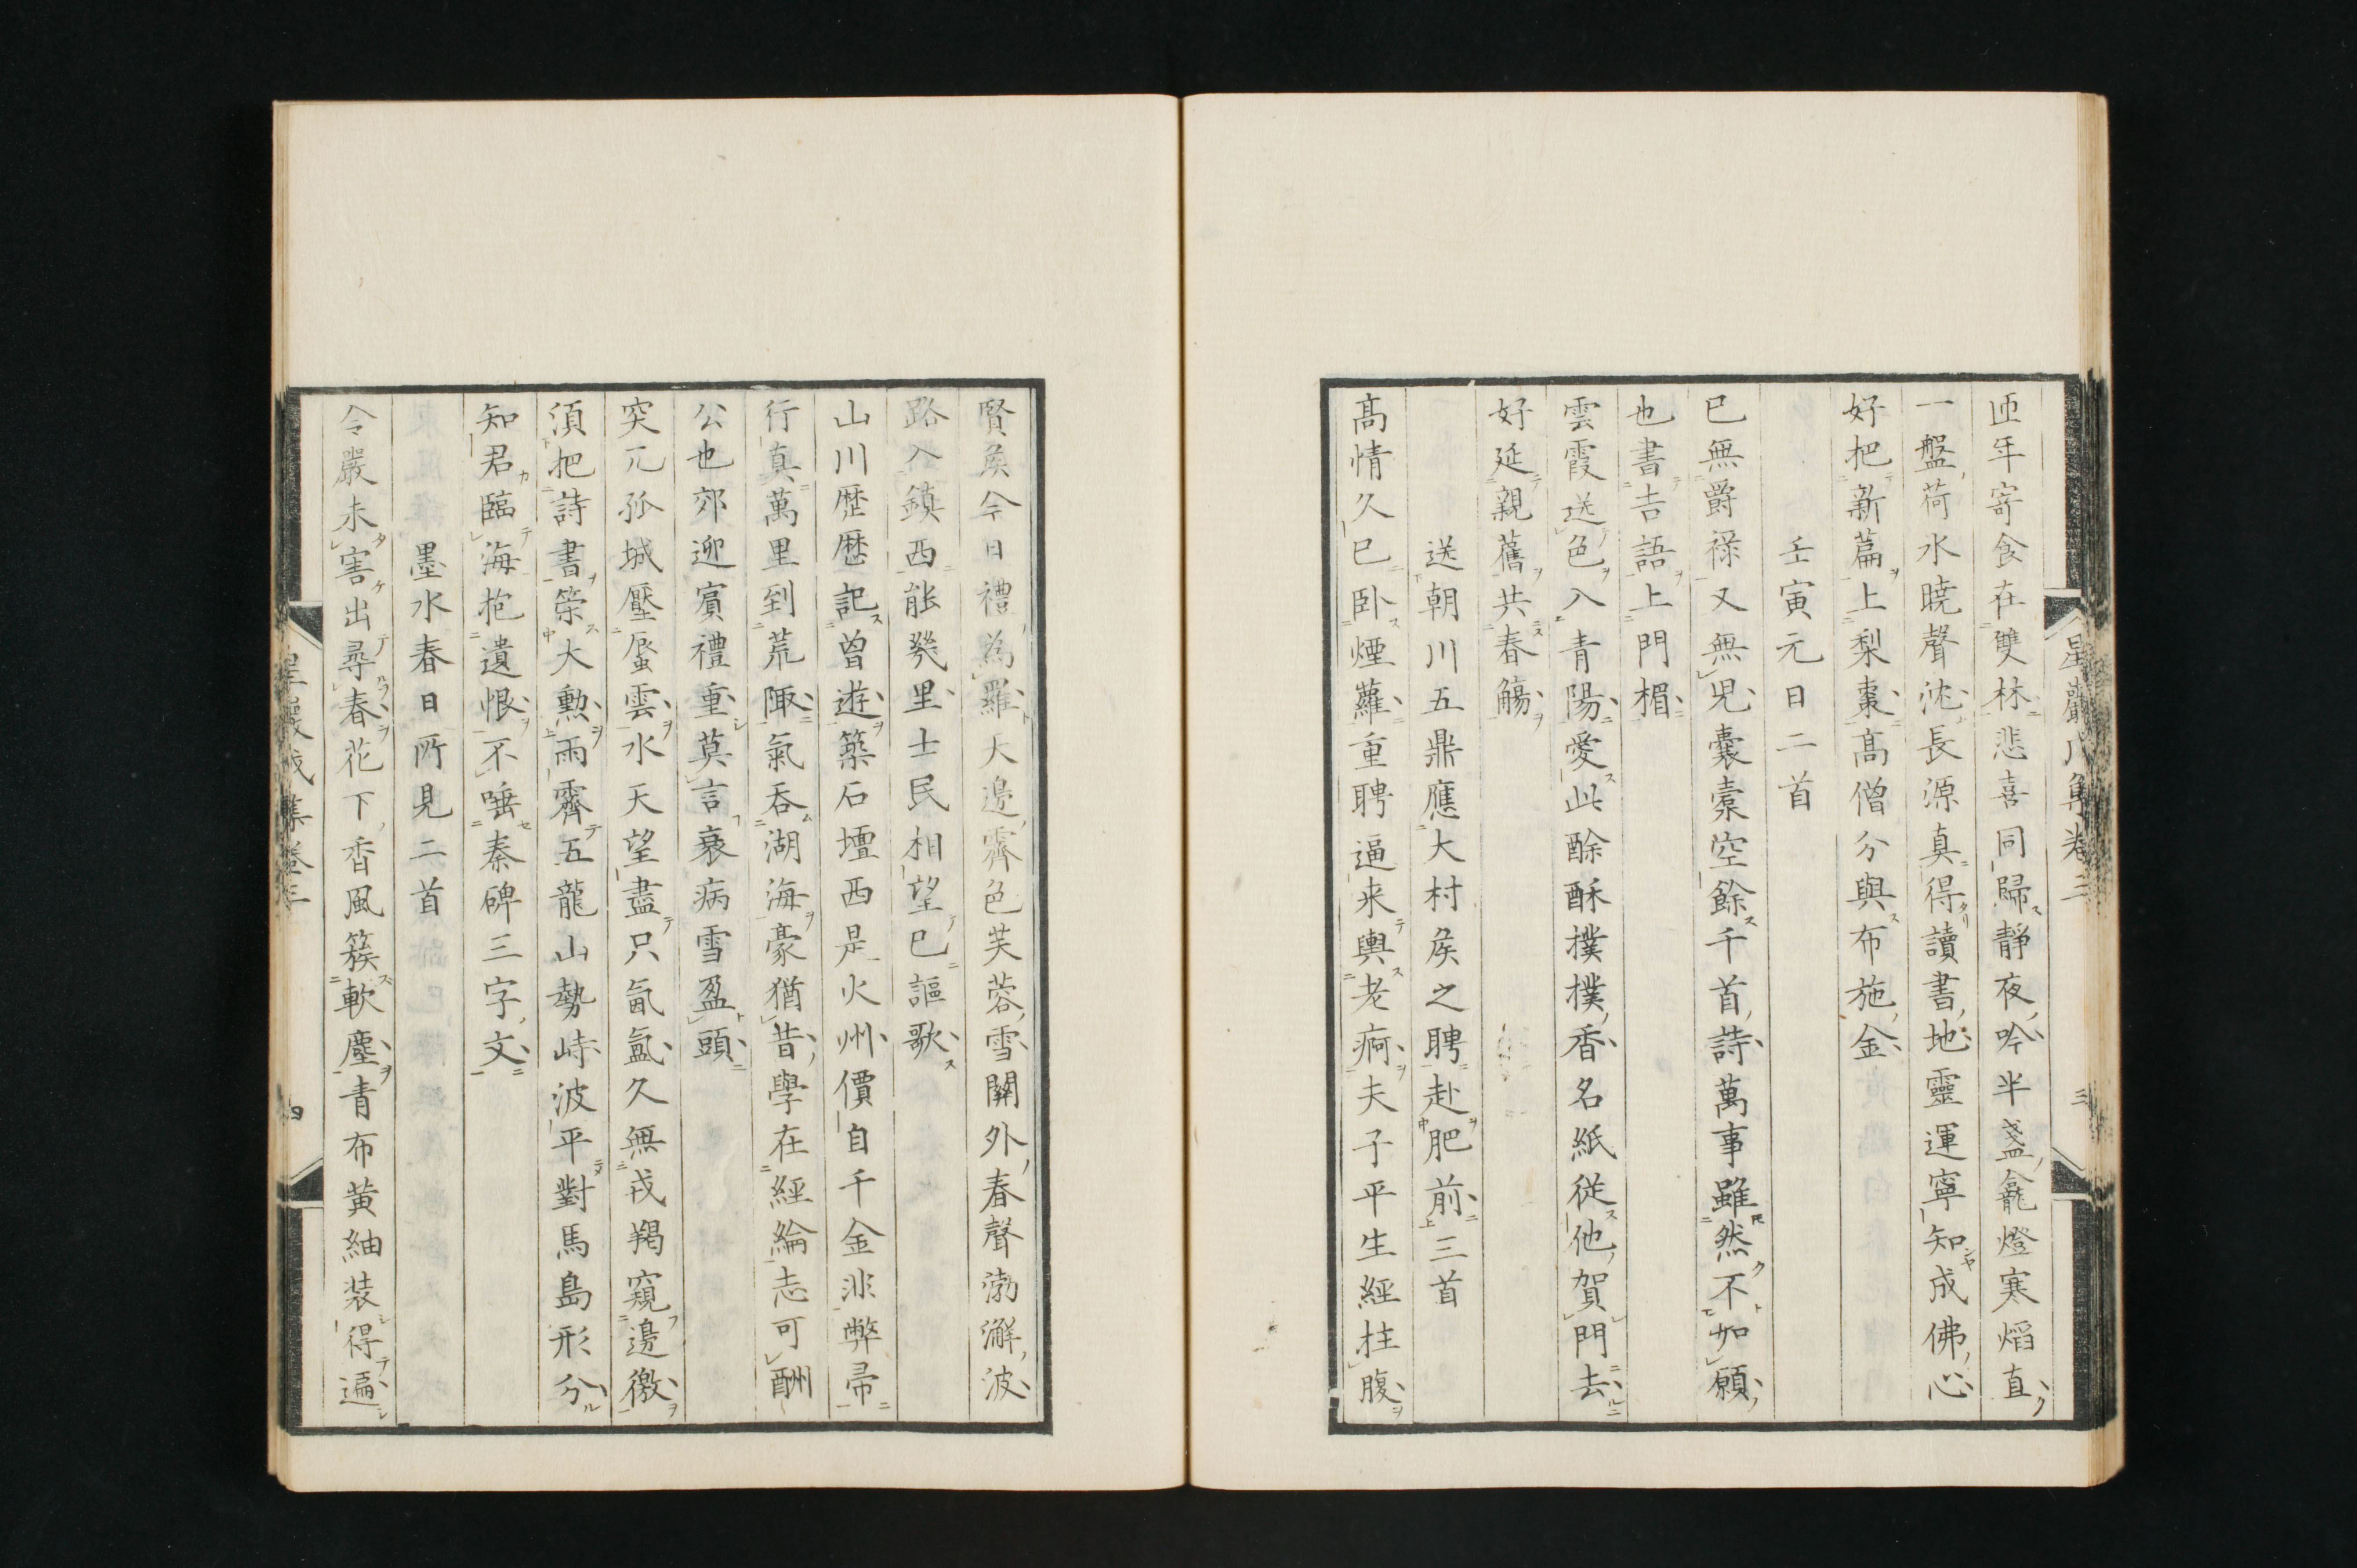 星巖戊集卷三
三
匝年寄食在雙林悲喜同歸靜夜吟半盞龕燈寒焰直
一盤荷水曉聲沈長源真得讀書地靈運寧知成佛心
好把新篇上梨棗高僧分與布施金
壬寅元日二首
已無爵祿又無兒囊橐空餘千首詩萬事雖然不如願
也書吉語上門楣
雲霞送色入青陽愛此酴酥撲撲香名紙従他賀門去
好延親舊共春觴
送朝川五鼎應大村矦之聘赴肥前三首
高情久已卧煙蘿重聘逼来輿老痾夫子平生經拄腹
賢矦今日禮為羅大邊霽色芙蓉雪關外春聲渤澥波
路入鎮西能幾里士民相望已謳歌
山川歴歴記曾遊築石壇西是火州價自千金非弊帚
行真萬里到荒陬氣吞湖海豪猶昔學在經綸志可酬
公也郊迎賓禮重莫言衰病雪盈頭
突兀孤城壓蜃雲水天望盡只氤氳久無戎羯窺邊徼
須把詩書策大勲雨霽五龍山勢峙波平對馬島形分
知君臨海抱遺恨不唾秦碑三字文
墨水春日所見二首
令嚴未害出尋春花下香風簇軟塵青布黃紬装得遍
星巖戊集卷三
四